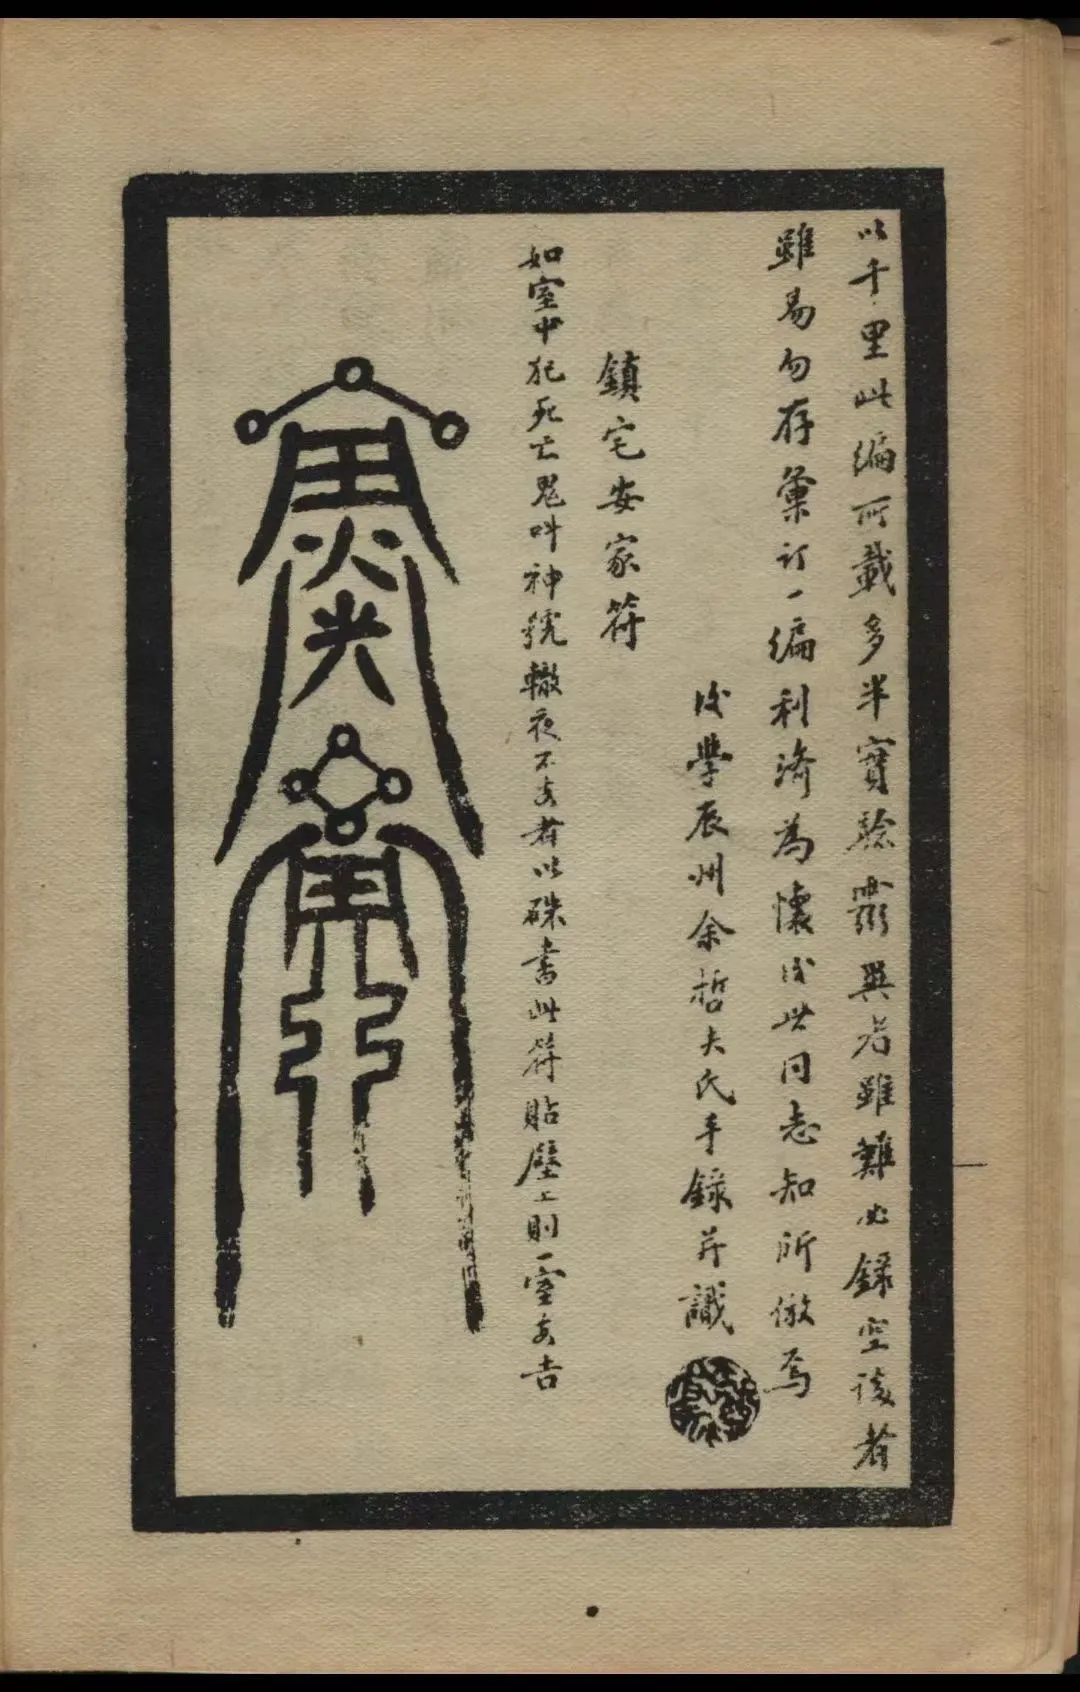 以千里此编所載多半實驗靈異者雖難必錄空該者
雖易勿存彙訂一编利濟為懷後世同志知所倣焉
後學辰州余哲夫氏手錄并識
鎮宅安家符
如室中犯死亡鬼叫神號轍夜不安者以硃書此符貼壁上則一室安吉